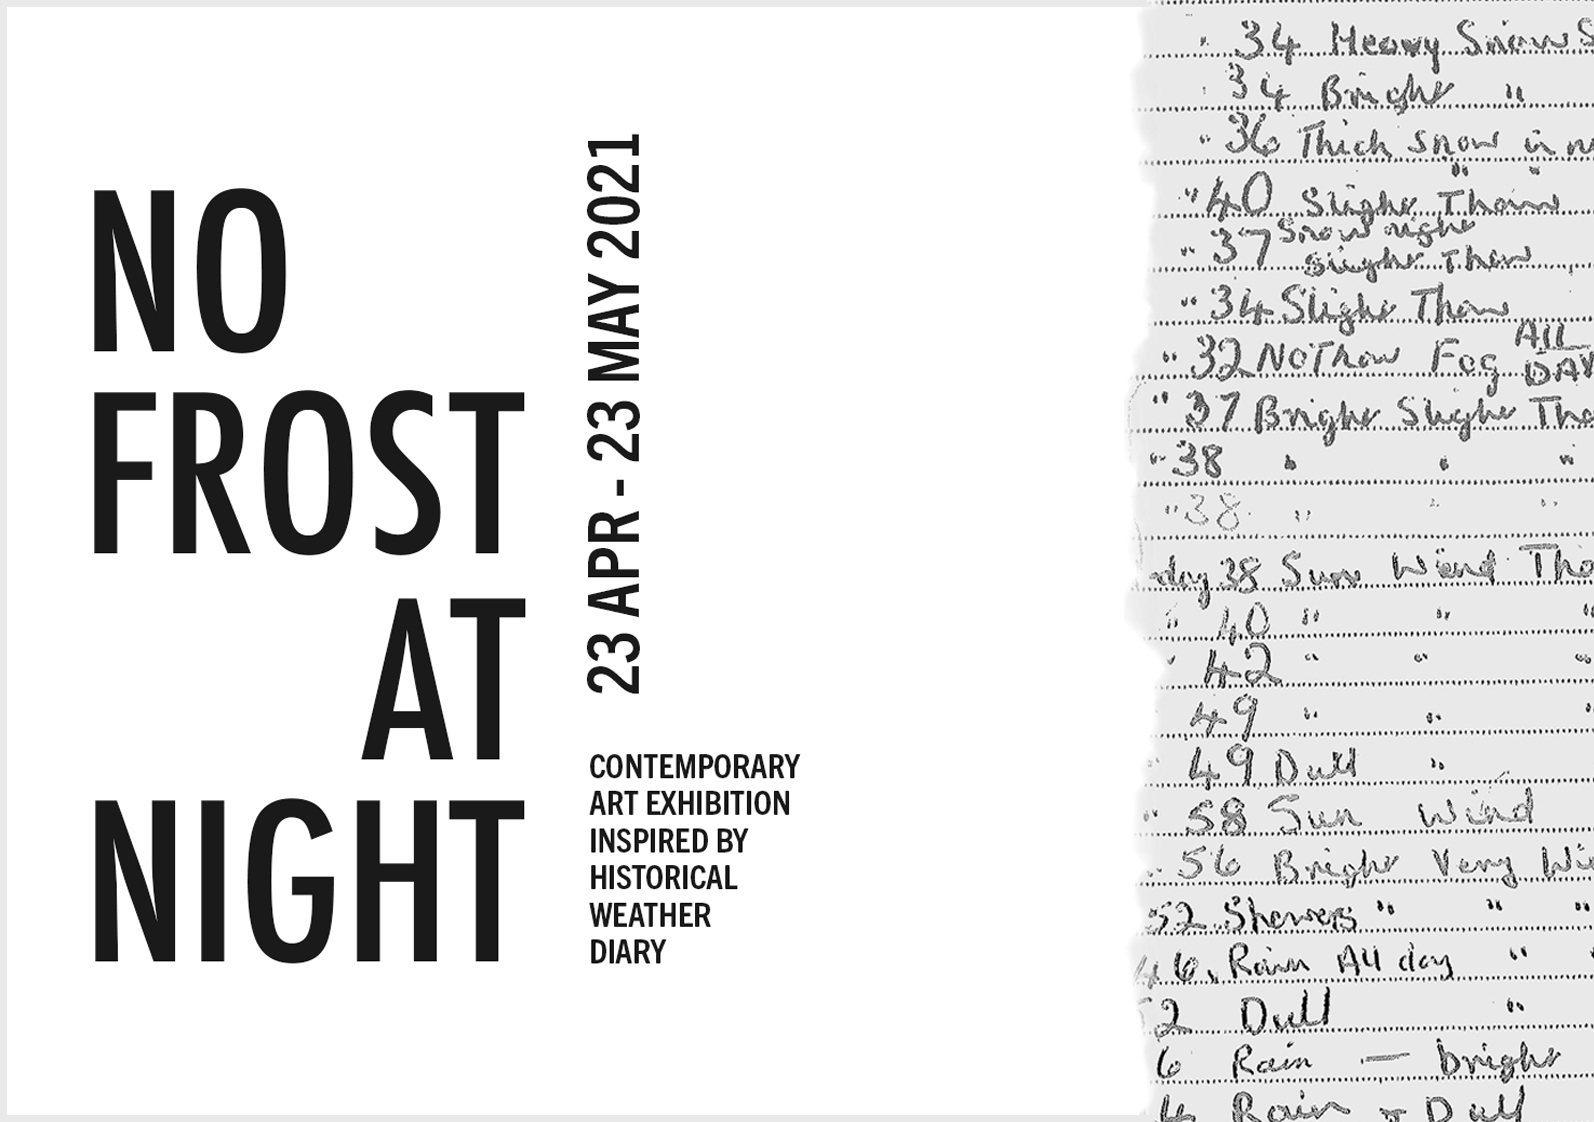 NO
FROST
AT
NIGHT
23 APR - 23 MAY 2021
CONTEMPORARY
ART EXHIBITION
INSPIRED BY
HISTORICAL
WEATHER
DIARY
" 34 Heavy Snow S
" 34 Bright "
" 36 Thick Snow in
" "
" 40 Slight Thaw
Snow night
" 37 Slight Thaw
" 34 Slight Thaw
" 32 No Thaw Fog ALL DAY
" 37 Bright Slight Tha
" 38 " " "
" 38 " " "
day 38 Sun Wind Tha
" 40 " " "
" 42 " " "
49 " "
49 Dull "
" 58 Sun Wind
" 56 Bright Very Wi
52 Showers " " "
46. Rain All day "
2 Dull "
6 Rain — bright
4 Rain & Dull